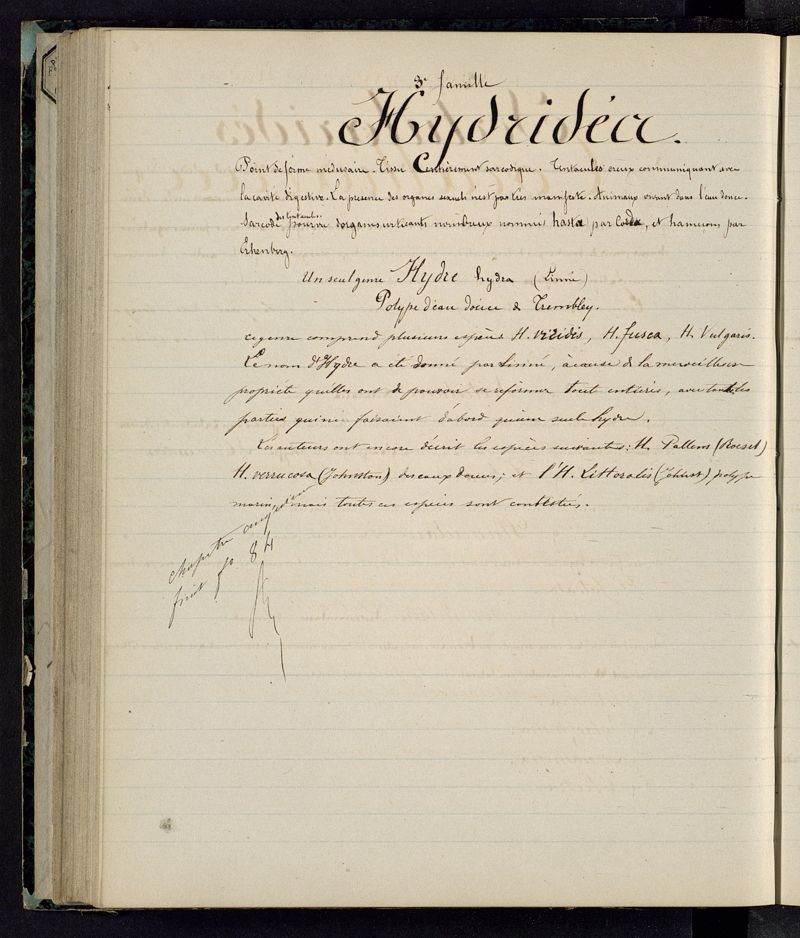 3e famille
Hydridéa.
Point de forme médusaire. Tissu entièrement sarcodique. Tentacules creux communiquant avec
la cavité digestive. La présence des organes sexuels n'est pas très manifeste. Animaux vivant dans l'eau douce.
Sarcode des tentacules pourvu d'organes urticants nombreux nommés hasta par Corda, et hameçons par
Erhenberg.
Un seul genre Hydre hydra (Linné)
Polype d'eau douce de Trembley.
ce genre comprend plusieurs espèces H. viridis, H. fusca, H. Vulgaris.
Le nom d'Hydre a été donné par Linné, à cause de la merveilleuse
propriété qu'elles ont de pouvoir se reformer tout entières, avec toutes les
parties qui ne faisaient d'abord qu'une seule hydre.
Les auteurs ont encore décrit les espèces suivantes: H. Pallens (Roesel)
H. verrucosa (Johnston) des eaux douces; et l'H. Littoralis (Johnst) polype
marin, mais toutes ces espèces sont contestées.
chapitre
fo. 84